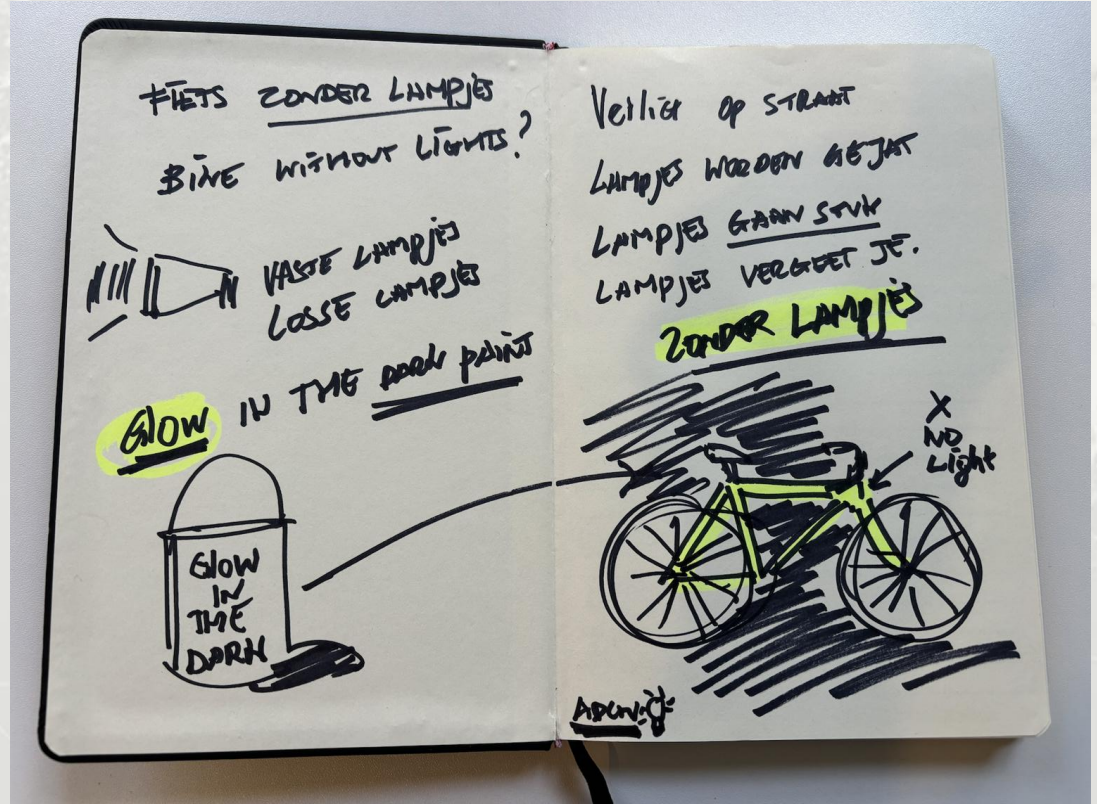 FIETS ZONDER LAMPJES
BIKE WITHOUT LIGHTS?
VASTE LAMPJES
LOSSE LAMPJES
GLOW IN THE DARK PAINT
GLOW
IN
THE
DARK
Veilig op STRAAT
LAMPJES WORDEN GEJAT
LAMPJES GAAN STUK
LAMPJES VERGEET JE.
ZONDER LAMPJES
X
NO
Light